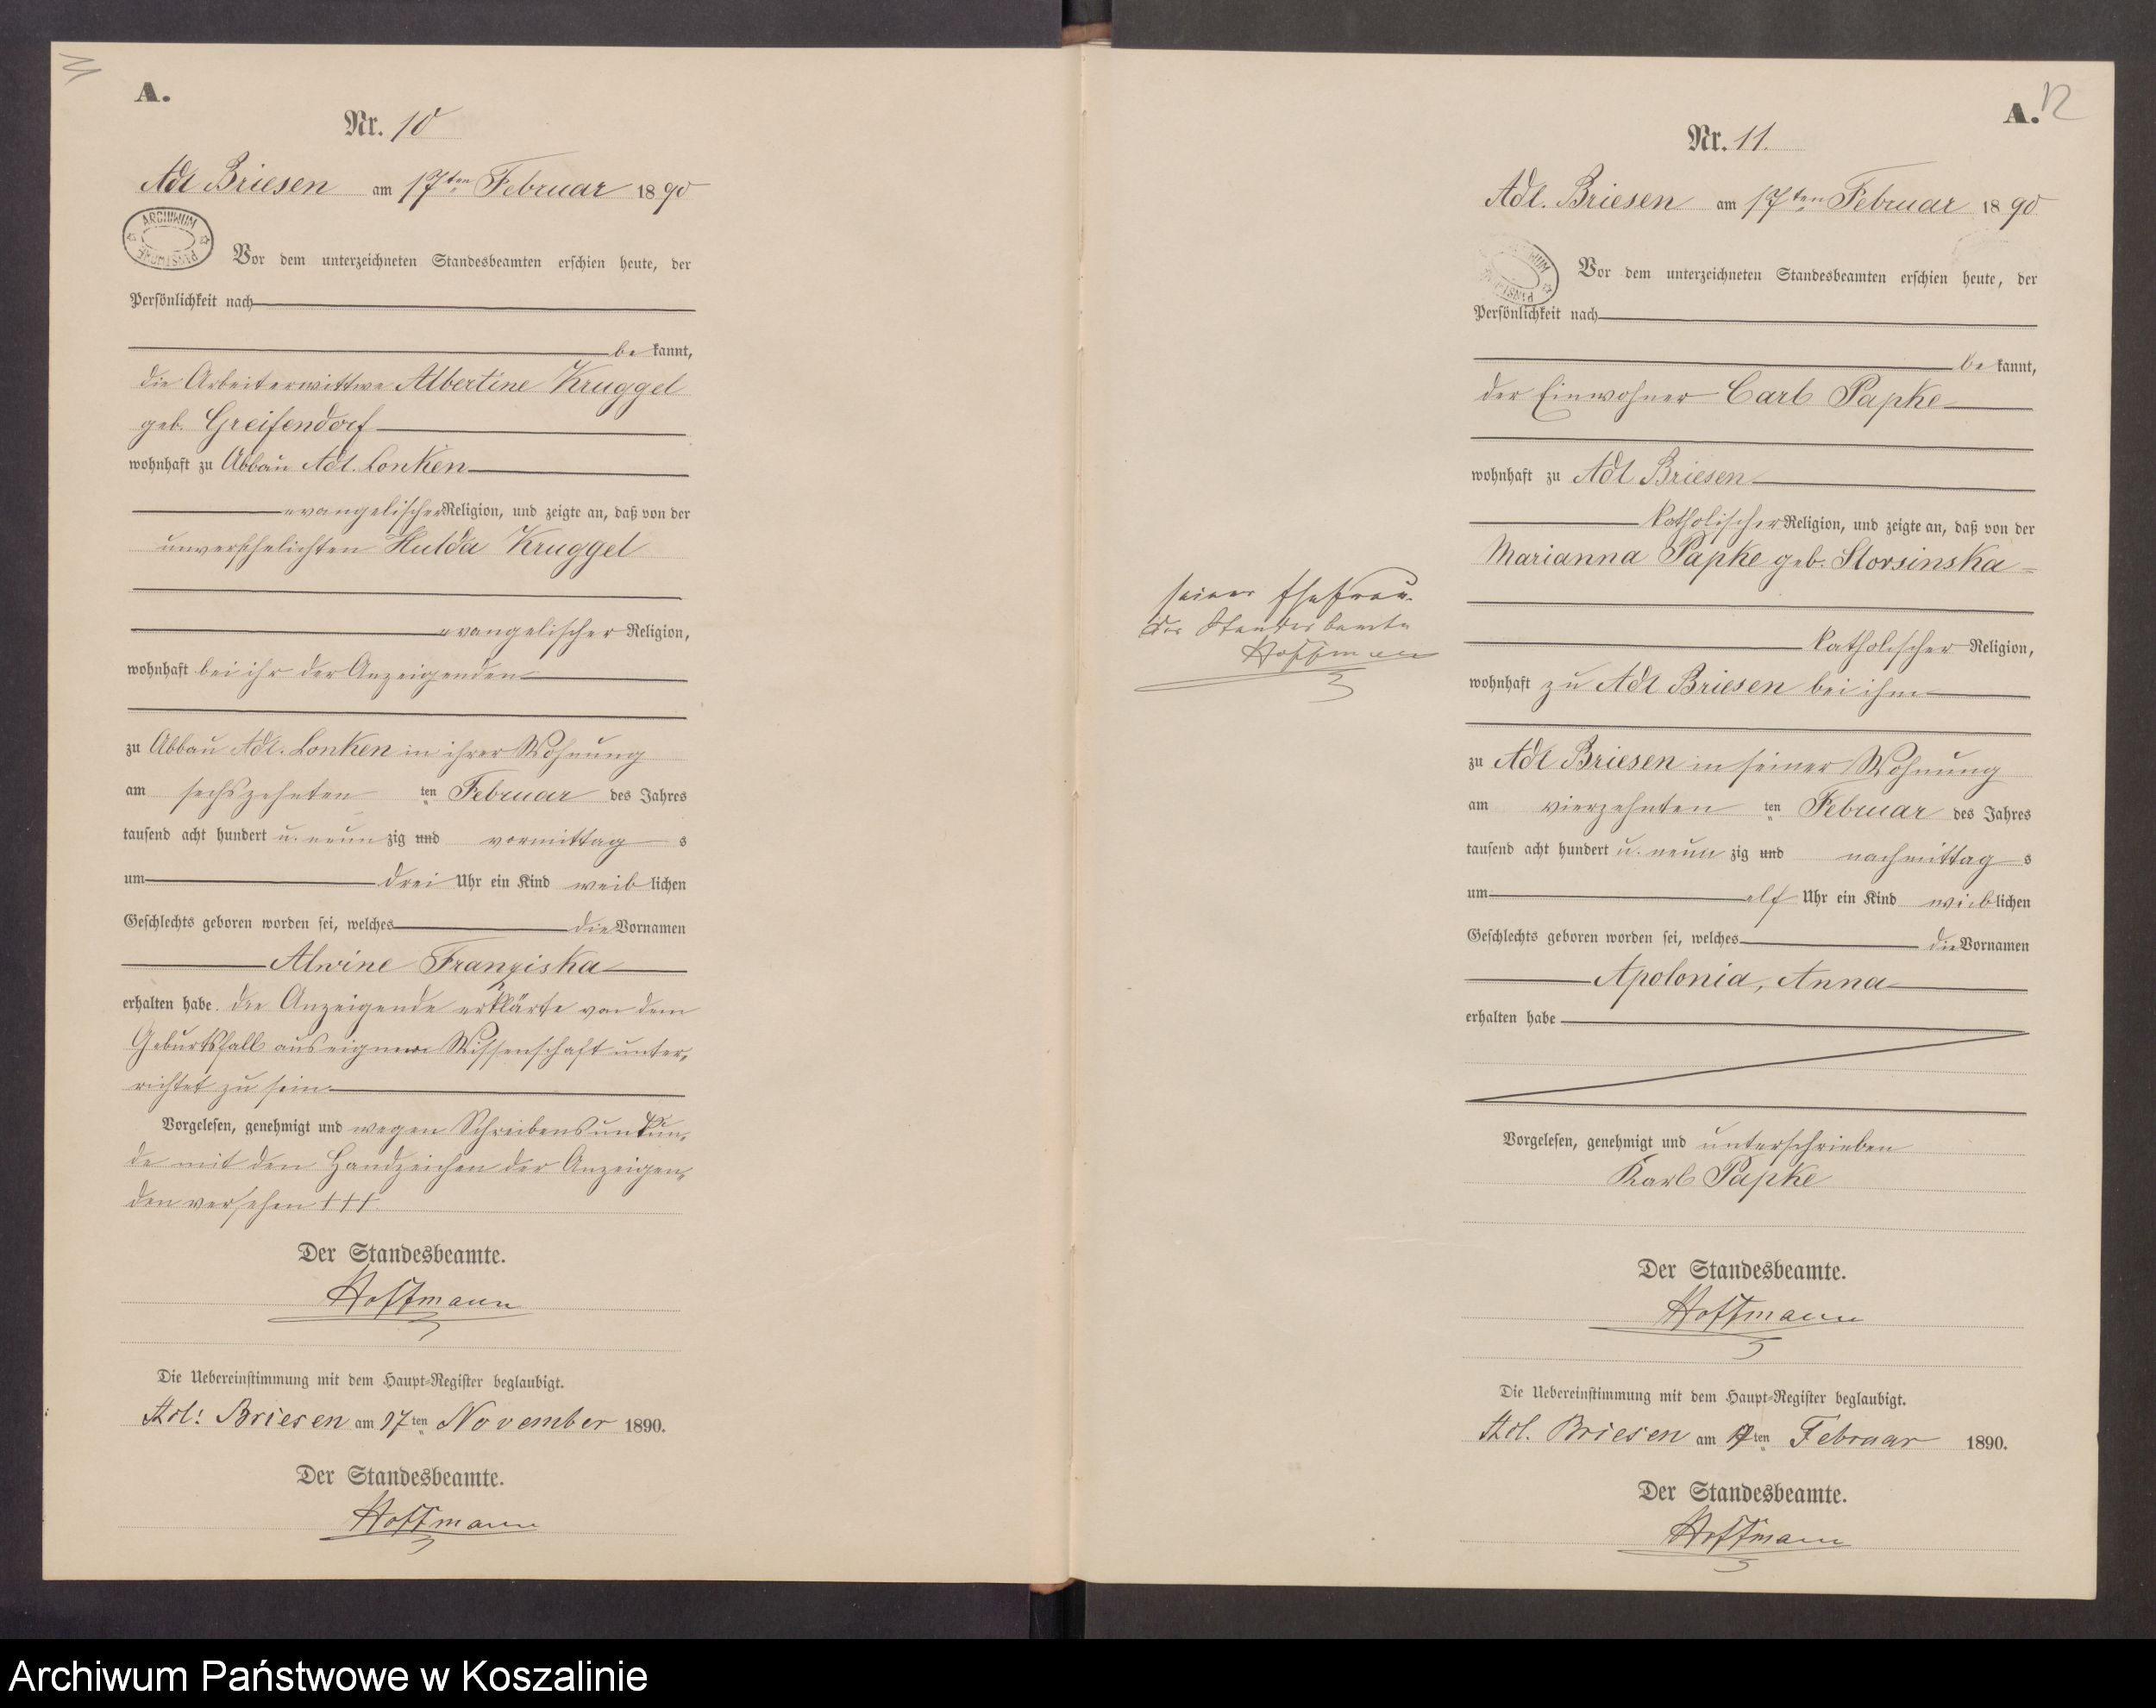 A.
Nr. 10
Adl Briesen am 17ten Februar 1890
ARCHIWUM PAŃSTWOWE
Vor dem unterzeichneten Standesbeamten erschien heute, der
Persönlichkeit nach
be kannt,
die Arbeiterwittwe Albertine Kruggel
geb. Greifendorf
wohnhaft zu Abbau Adl. Lonken
evangelischer Religion, und zeigte an, daß von der
unverehelichten Hulda Kruggel
evangelischer Religion,
wohnhaft bei ihr der Anzeigenden
zu Abbau Adl. Lonken in ihrer Wohnung
am sechszehnten ten Februar des Jahres
tausend acht hundert u. neun zig und vormittag s
um drei Uhr ein Kind weib lichen
Geschlechts geboren worden sei, welches die Vornamen
Alwine Franziska
erhalten habe. die Anzeigende erklärte von dem
Geburtsfall aus eigner Wissenschaft unter,
richtet zu sein
Vorgelesen, genehmigt und wegen Schreibensunkun,
de mit den Handzeichen der Anzeigen,
den versehen +++
Der Standesbeamte.
Hoffmann
Die Uebereinstimmung mit dem Haupt-Register beglaubigt.
Adl: Briesen am 17ten November 1890.
Der Standesbeamte.
Hoffmann
A. 12
Nr. 11.
Adl. Briesen am 17ten Februar 1890
Vor dem unterzeichneten Standesbeamten erschien heute, der
Persönlichkeit nach
be kannt,
der Einwohner Carl Papke
wohnhaft zu Adl Briesen
katholischer Religion, und zeigte an, daß von der
Marianna Papke geb. Slorsinska
seiner Ehefrau.
Der Standesbeamte
Hoffmann
katholischer Religion,
wohnhaft zu Adl Briesen bei ihm
zu Adl Briesen in seiner Wohnung
am vierzehnten ten Februar des Jahres
tausend acht hundert u. neun zig und nachmittag s
um elf Uhr ein Kind weib lichen
Geschlechts geboren worden sei, welches die Vornamen
Apolonia, Anna
erhalten habe
Vorgelesen, genehmigt und unterschrieben
Karl Papke
Der Standesbeamte.
Hoffmann
Die Uebereinstimmung mit dem Haupt-Register beglaubigt.
Adl. Briesen am 17ten Februar 1890.
Der Standesbeamte.
Hoffmann
Archiwum Państwowe w Koszalinie